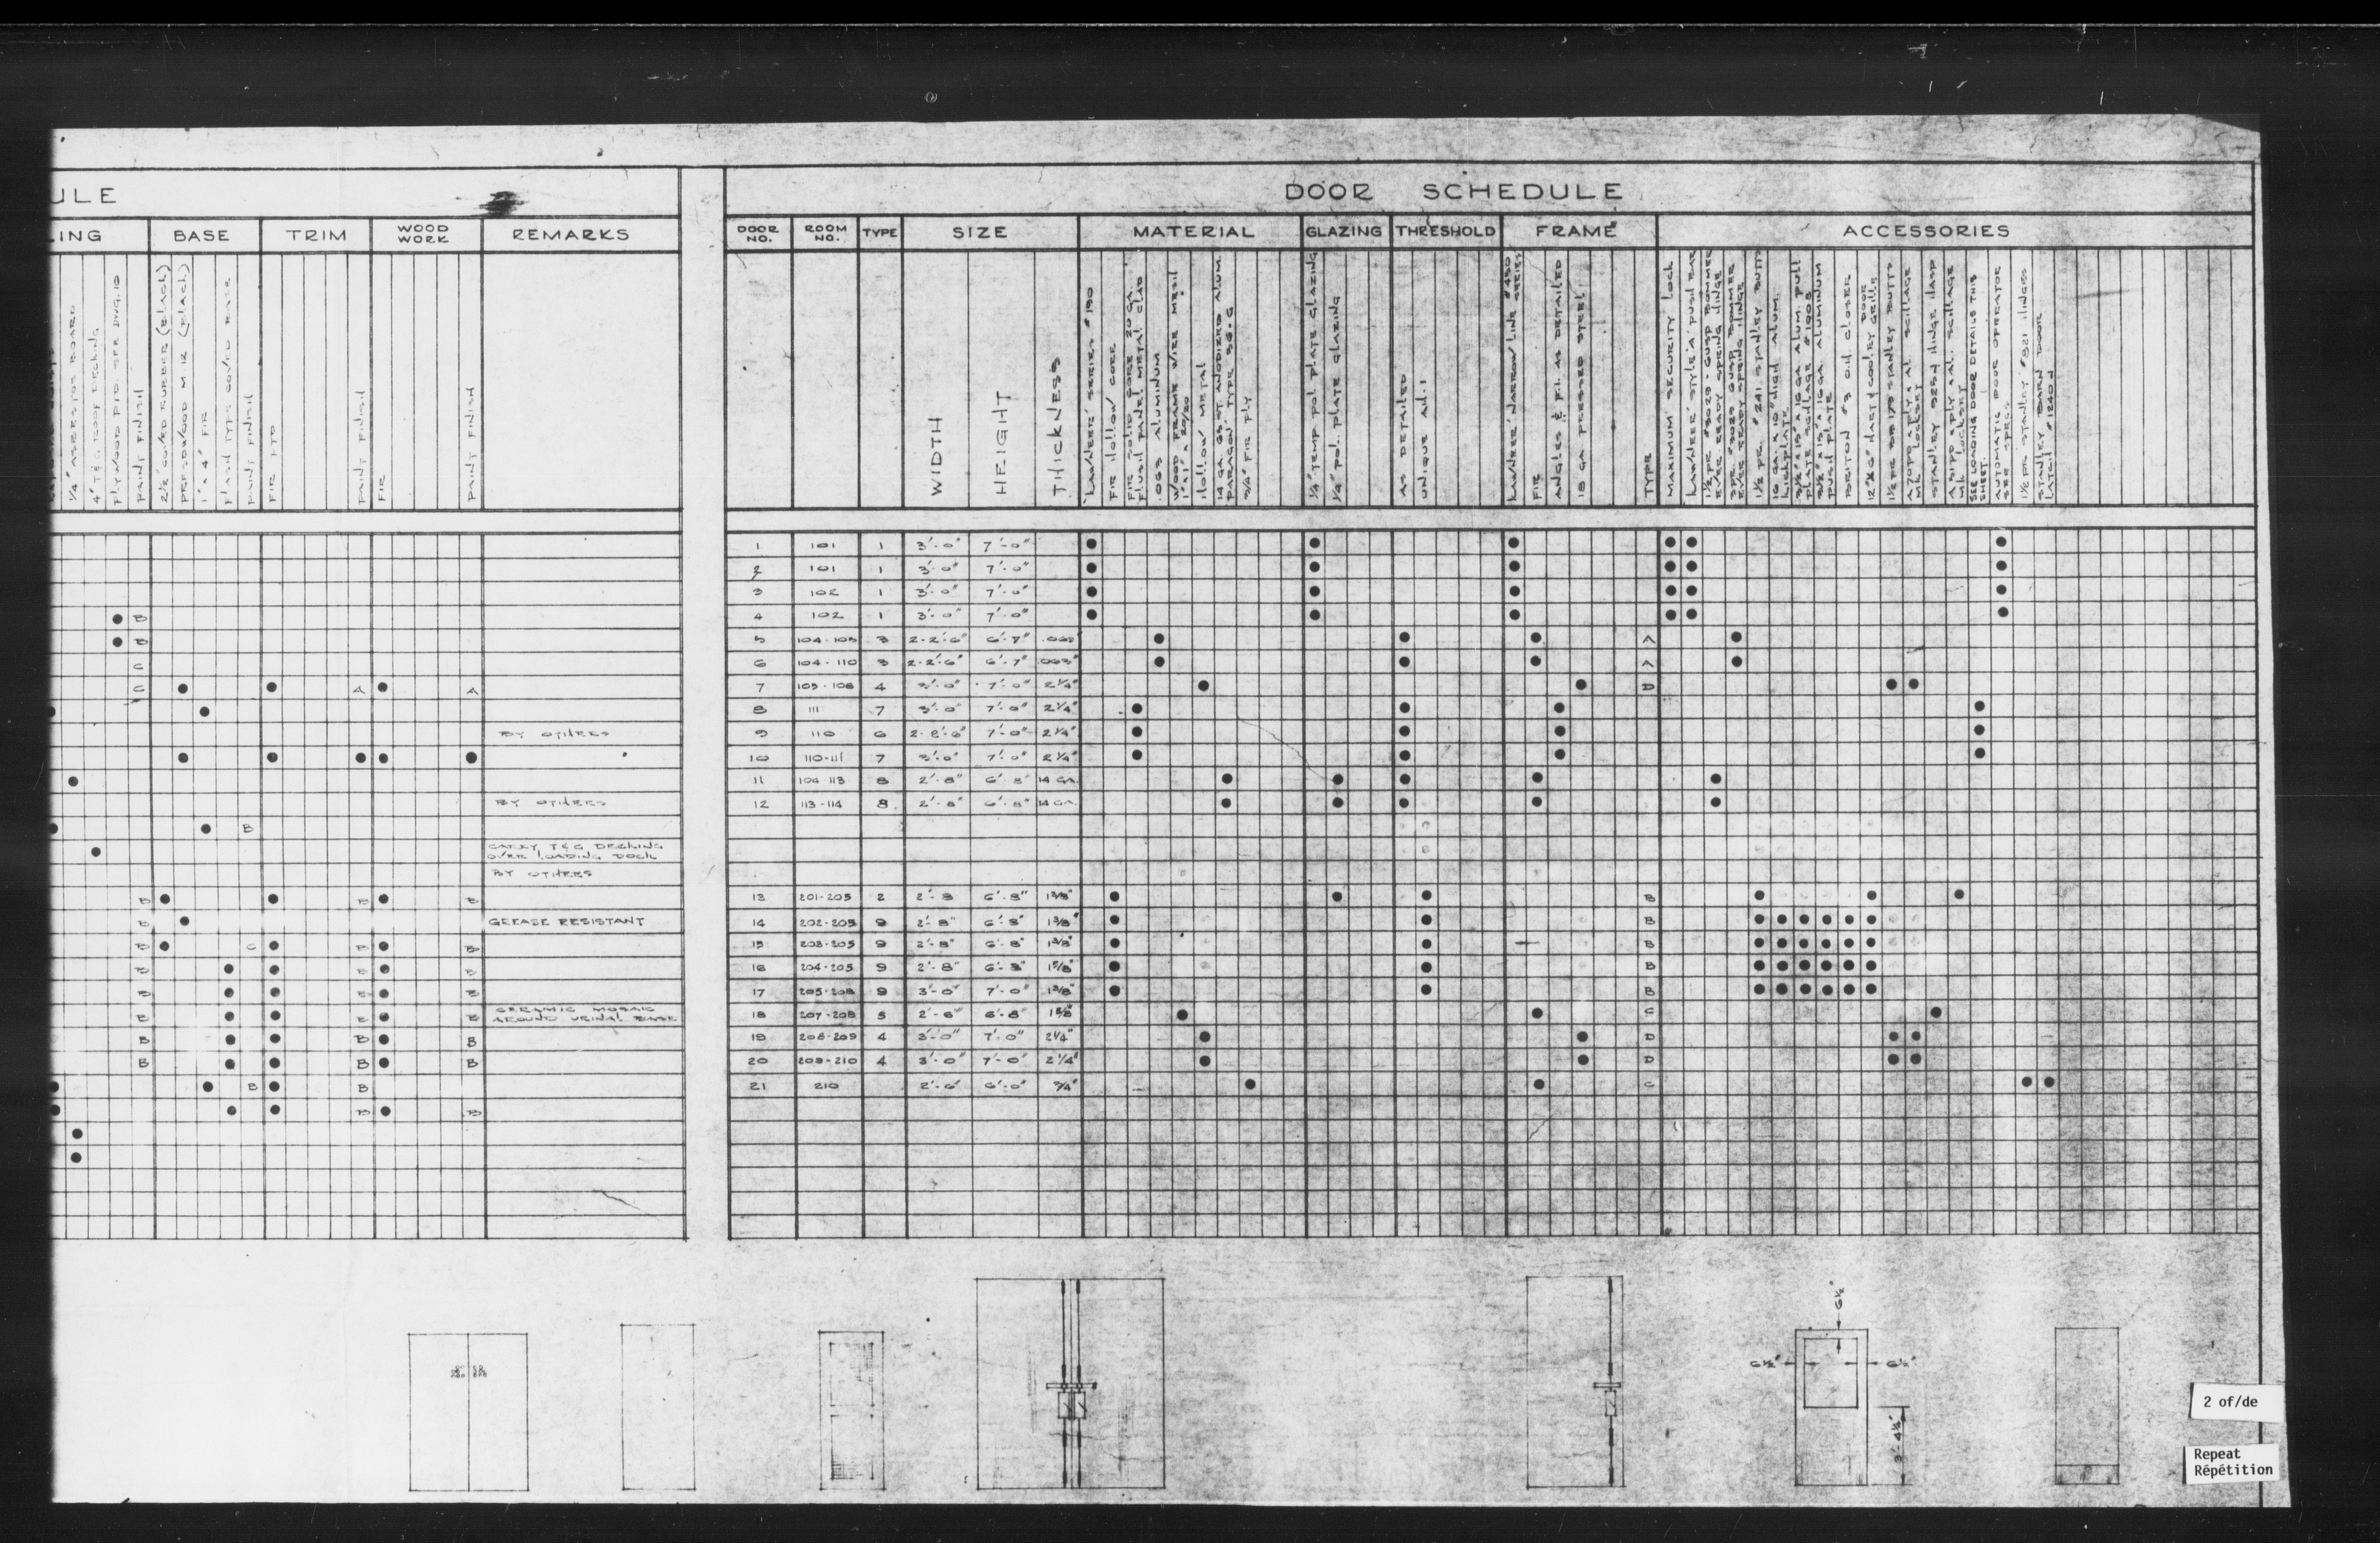 ULE
LING
BASE
TRIM
WOOD WORK
REMARKS
1/4" ASBESTOS BOARD
4" T & G ROOF DECKING
PLYWOOD P.T.D. SEE DWG. 10
PAINT FINISH
2 1/2" COVED RUBBER (BLACK)
PRESDWOOD M 12 (BLACK)
1" x 4" FIR
FLASH TYPE COVED BASE
PAINT FINISH
FIR
PAINT FINISH
FIR
PAINT FINISH
B
B
C
C A A
BY OTHERS
BY OTHERS
B
CARRY T & G DECKING
OVER LOADING DOCK
BY OTHERS
B B B
B GREASE RESISTANT
B C B B
B B B
B B B
B B B CERAMIC MOSAIC
AROUND URINAL BASE
B B B
B B B
B B
B B
DOOR SCHEDULE
DOOR NO.
ROOM NO.
TYPE
SIZE
MATERIAL
GLAZING
THRESHOLD
FRAME
ACCESSORIES
WIDTH
HEIGHT
THICKNESS
'KAWNEER' SERIES #190
FIR HOLLOW CORE
FIR SOLID CORE 20 GA.
FLUSH PANEL METAL CLAD
.063 ALUMINUM
WOOD FRAME WIRE MESH
1" x 1" x 20/20
HOLLOW METAL
14 GA. GS ST. ANODIZED ALUM.
PARAGON TYPE SG-G
3/4" FIR PLY
1/4" TEMP. POL. PLATE GLAZING
1/4" POL. PLATE GLAZING
AS DETAILED
UNIQUE AH-1
KAWNEER NARROW LINE #450 SERIES
FIR
ANGLES & F.I. AS DETAILED
18 GA PRESSED STEEL
TYPE
MAXIMUM SECURITY LOCK
KAWNEER STYLE 'A' PUSH BAR
1 1/2 PR. #3029 GUSP BOMMER
EVER READY SPRING HINGE
2 PR. #3029 GUSP BOMMER
EVER READY SPRING HINGE
1 1/2 PR. #241 STANLEY BUTTS
16 GA. x 10" HIGH ALUM.
KICKPLATE
3 1/2" x 15" x 16 GA. ALUM. PULL
PLATE SCHLAGE #1003
3 1/2" x 15" x 16 GA. ALUMINUM
PUSH PLATE
BRITON #3 OIL CLOSER
12" x 6" HART & COOLEY DOOR GRILLE
1 1/2 PR BB 179 STANLEY BUTTS
A 70 PD x PLY x AL SCHLAGE
MK. LOCKSET
STANLEY 925H HINGE HASP
A 51 PD x PLY x AL. SCHLAGE
MK. LOCKSET
SEE LOADING DOOR DETAILS THIS
SHEET.
AUTOMATIC DOOR OPERATOR
SEE SPECS
1 1/2 PR STANLEY #821 HINGES
STANLEY BARN DOOR
LATCH #1240H
1 101 1 3'-0" 7'-0"
2 101 1 3'-0" 7'-0"
3 102 1 3'-0" 7'-0"
4 102 1 3'-0" 7'-0"
5 104-105 3 2-2'-6" 6'-7" .063" A
6 104-110 3 2-2'-6" 6'-7" .063" A
7 105-108 4 3'-0" 7'-0" 2 1/4" D
8 111 7 3'-0" 7'-0" 2 1/4"
9 110 6 2-2'-6" 7'-0" 2 1/4"
10 110-111 7 3'-0" 7'-0" 2 1/4"
11 104-113 8 2'-8" 6'-8" 14 GA.
12 113-114 8 2'-8" 6'-8" 14 GA.
13 201-205 2 2'-8 6'-8" 1 3/8" B
14 202-205 9 2'-8" 6'-8" 1 3/8" B
15 203-205 9 2'-8" 6'-8" 1 3/8" B
16 204-205 9 2'-8" 6'-8" 1 3/8" B
17 205-208 9 3'-0" 7'-0" 1 3/8" B
18 207-208 5 2'-6" 6'-8" 1 3/8" C
19 208-209 4 3'-0" 7'-0" 2 1/4" D
20 209-210 4 3'-0" 7'-0" 2 1/4" D
21 210 2'-6" 6'-0" 3/4" C
6 1/2"
6 1/2" 6 1/2"
3'-4 1/2"
2 of/de
Repeat
Répétition